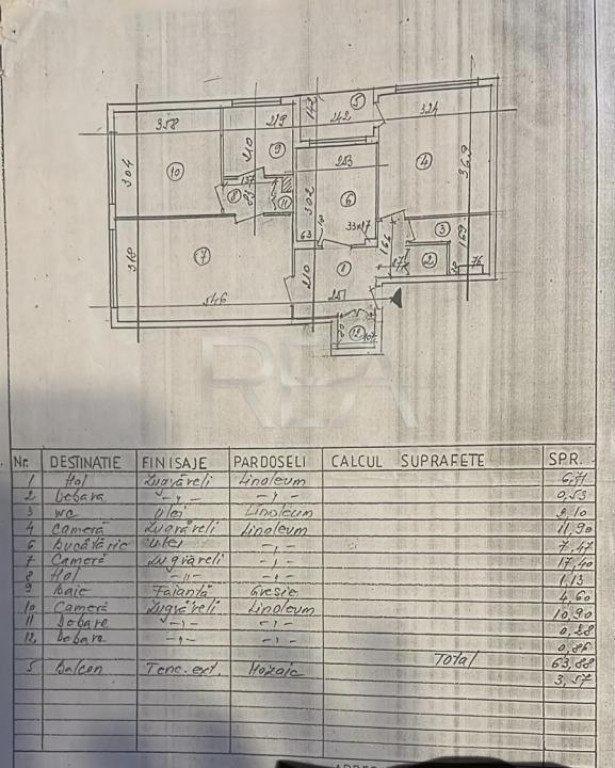 5
143
242
324
358
219
210
9
253
304
10
4
369
8
11
302
6
63
3
166
169
7
318
210
1
2
76
546
251
12
REA
Nr. DESTINATIE FINISAJE PARDOSELI CALCUL SUPRAFETE SPR.
1 Hol Zugrăveli Linoleum 6,71
2 Debara -„- -„- 0,53
3 WC Ulei Linoleum 2,10
4 Cameră Zugrăveli Linoleum 11,90
6 Bucătărie Ulei -„- 7,47
7 Cameră Zugrăveli -„- 17,40
8 Hol -„- -„- 1,13
9 Baie Faianță Gresie 4,60
10 Cameră Zugrăveli Linoleum 10,90
11 Debara -„- -„- 0,28
12 Debara -„- -„- 0,86
Total 63,88
5 Balcon Tenc.ext. Mozaic 3,57